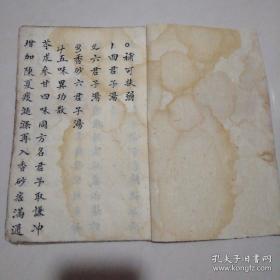 補可扶弱
四君子湯
六君子湯
香砂六君子湯
五味異功散
苓朮參甘四味同方名君子取謙冲
增加陳夏痰涎滌再入香砂痞滿通
孔夫子旧书网